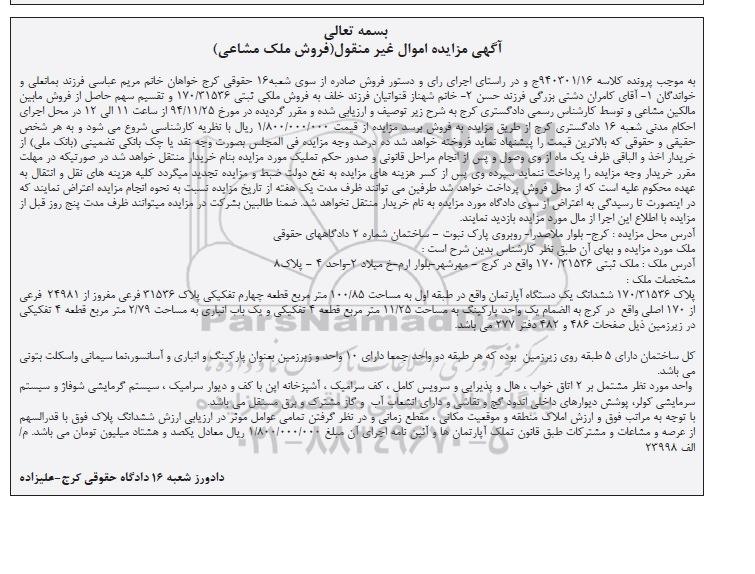 بسمه تعالی
آگهی مزایده اموال غیر منقول(فروش ملک مشاعی)
به موجب پرونده کلاسه ۹۴۰۳۰۱/۱۶ج و در راستای اجرای رای و دستور فروش صادره از سوی شعبه۱۶ حقوقی کرج خواهان خانم مریم عباسی فرزند بمانعلی و
خواندگان ۱- آقای کامران دشتی بزرگی فرزند حسن ۲- خانم شهناز قنواتیان فرزند خلف به فروش ملکی ثبتی ۱۷۰/۳۱۵۳۶ و تقسیم سهم حاصل از فروش مابین
مالکین مشاعی و توسط کارشناس رسمی دادگستری کرج به شرح زیر توصیف و ارزیابی شده و مقرر گردیده در مورخ ۹۴/۱۱/۲۵ از ساعت ۱۱ الی ۱۲ در محل اجرای
احکام مدنی شعبه ۱۶ دادگستری کرج از طریق مزایده به فروش برسد مزایده از قیمت ۱/۸۰۰/۰۰۰/۰۰۰ ریال با نظریه کارشناسی شروع می شود و به هر شخص
حقیقی و حقوقی که بالاترین قیمت را پیشنهاد نماید فروخته خواهد شد ده درصد وجه مزایده فی المجلس بصورت وجه نقد یا چک بانکی تضمینی (بانک ملی) از
خریدار اخذ و الباقی ظرف یک ماه از وی وصول و پس از انجام مراحل قانونی و صدور حکم تملیک مورد مزایده بنام خریدار منتقل خواهد شد در صورتیکه در مهلت
مقرر خریدار وجه مزایده را پرداخت ننماید سپرده وی پس از کسر هزینه های مزایده به نفع دولت ضبط و مزایده تجدید میگردد کلیه هزینه های نقل و انتقال به
عهده محکوم علیه است که از محل فروش پرداخت خواهد شد طرفین می توانند ظرف مدت یک هفته از تاریخ مزایده نسبت به نحوه انجام مزایده اعتراض نمایند که
در اینصورت تا رسیدگی به اعتراض از سوی دادگاه مورد مزایده به نام خریدار منتقل نخواهد شد. ضمنا طالبین بشرکت در مزایده میتوانند ظرف مدت پنج روز قبل از
مزایده با اطلاع این اجرا از مال مورد مزایده بازدید نمایند.
آدرس محل مزایده : کرج- بلوار ملاصدرا- روبروی پارک نبوت – ساختمان شماره ۲ دادگاههای حقوقی
ملک مورد مزایده و بهای آن طبق نظر کارشناس بدین شرح است :
آدرس ملک : ملک ثبتی ۱۷۰/۳۱۵۳۶ واقع در کرج – مهرشهر-بلوار ارم-خ میلاد ۲-واحد ۴ – پلاک۸
مشخصات ملک :
پلاک ۱۷۰/۳۱۵۳۶ ششدانگ یک دستگاه آپارتمان واقع در طبقه اول به مساحت ۱۰۰/۸۵ متر مربع قطعه چهارم تفکیکی پلاک ۳۱۵۳۶ فرعی مفروز از ۲۴۹۸۱ فرعی
از ۱۷۰ اصلی واقع در کرج به انضمام یک واحد پارکینگ به مساحت ۱۱/۲۵ متر مربع قطعه ۴ تفکیکی و یک باب انباری به مساحت ۲/۷۹ متر مربع قطعه ۴ تفکیکی
در زیرزمین ذیل صفحات ۴۸۶ و ۴۸۲ دفتر ۲۷۷ می باشد.
کل ساختمان دارای ۵ طبقه روی زیرزمین بوده که هر طبقه دو واحد جمعا دارای ۱۰ واحد و زیرزمین بعنوان پارکینگ و انباری و آسانسور،نما سیمانی واسکلت بتونی
می باشد.
واحد مورد نظر مشتمل بر ۲ اتاق خواب ، هال و پذیرایی و سرویس کامل ، کف سرامیک ، آشپزخانه اپن با کف و دیوار سرامیک ، سیستم گرمایشی شوفاژ و سیستم
سرمایشی کولر، پوشش دیوارهای داخلی اندود گچ و نقاشی و دارای انشعاب آب و گاز مشترک و برق مستقل می باشد.
با توجه به مراتب فوق و ارزش املاک منطقه و موقعیت مکانی ، مقطع زمانی و در نظر گرفتن تمامی عوامل موثر در ارزیابی ارزش ششدانگ پلاک فوق با قدرالسهم
از عرصه و مشاعات و مشترکات طبق قانون تملک آپارتمان ها و آئین نامه اجرای آن مبلغ ۱/۸۰۰/۰۰۰/۰۰۰ ریال معادل یکصد و هشتاد میلیون تومان می باشد. م/
الف ۲۳۹۹۸
دادورز شعبه ۱۶ دادگاه حقوقی کرج-علیزاده
ParsNamadData
۰۲۱-۸۸۳۴۹۶۷۰-۵